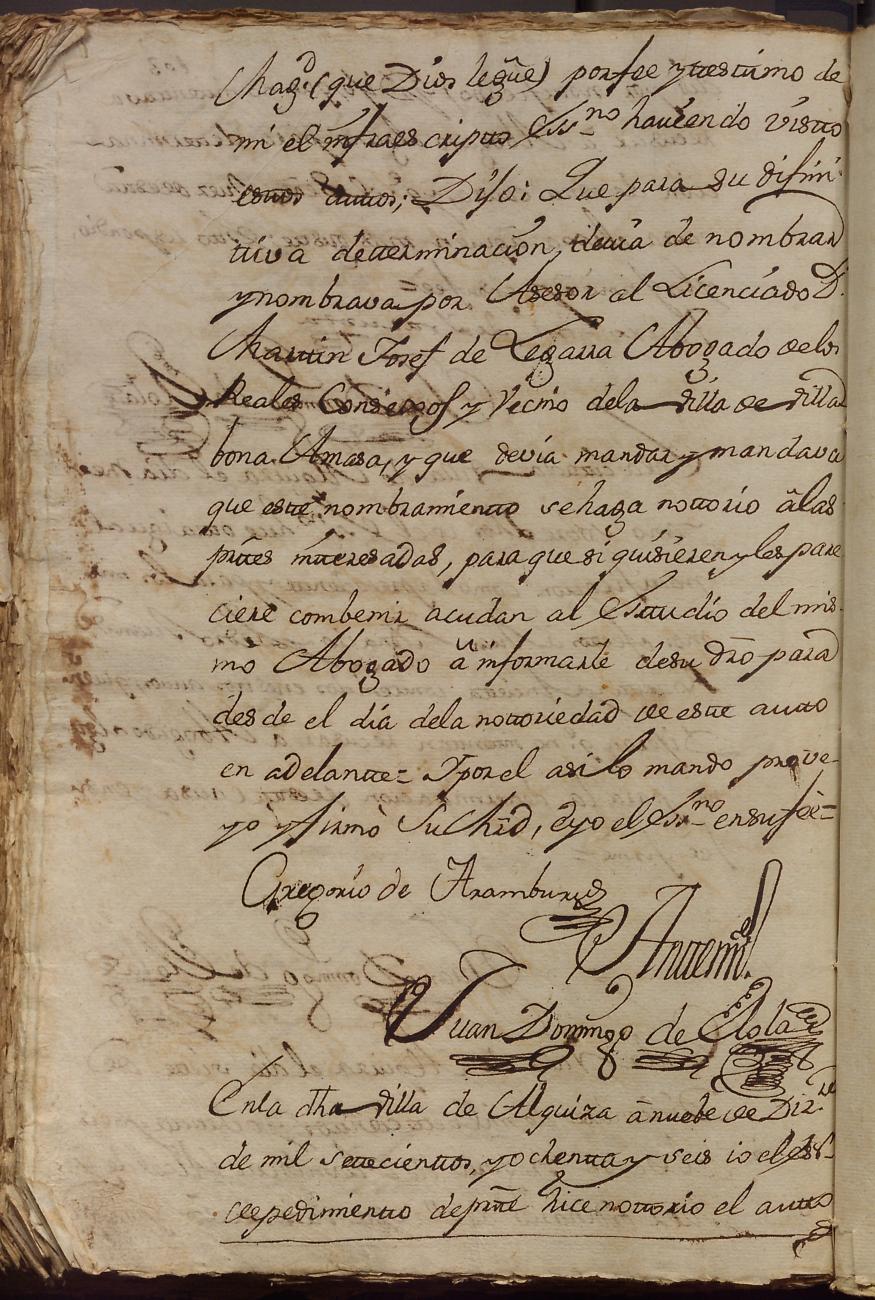 Mag.d (que Dios legûe) por fee y testimo de
mi el infraescripto Ess.no haviendo visto
estos autos; Dijo: Que para su difini-
tiva determinación, devia de nombrar
y nombrava por Asesor al Licenciado D.
Martin Josef de Legarra Abogado de los
Reales Consejos y Vecino dela Villa de Villa
bona Amasa, y que devia mandar y mandava
que este nombramiento se haga nottorio â las
prtes interesadas, para que si quisieren y les pare
ciere combenir acudan al Estudio del mis-
mo Abogado â informarle de su dro para
desde el dia dela nottoriedad de este autto
en adelantte= Y por el asi lo mando prove-
yo y firmò Su Mrd, e yo el Ess.no en su fée=
Gregorio de Aramburu
Antemi
Juan Domingo de Elola
En la dha Villa de Alquiza â nuebe de Diz.re
de mil settecienttos, y ochentta y seis io el es.
de pedimiento de prte hice nottorio el autto